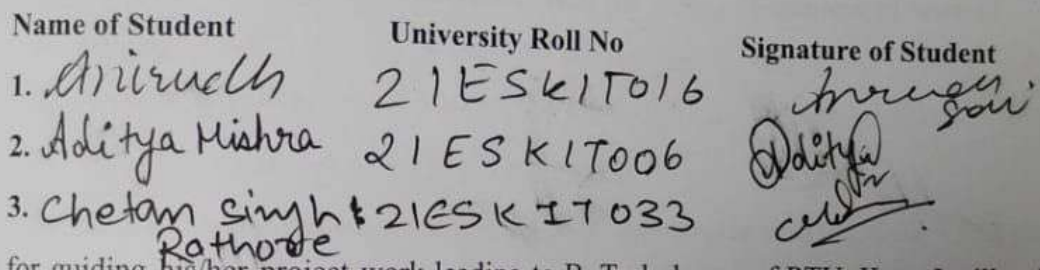 Name of Student University Roll No Signature of Student
1. Anirudh 21ESKIT016 Anirudh Soni
2. Aditya Mishra 21ESKIT006 Aditya
3. Chetan Singh 21ESKIT033
Rathore
for guiding his/her project work leading to B. Tech